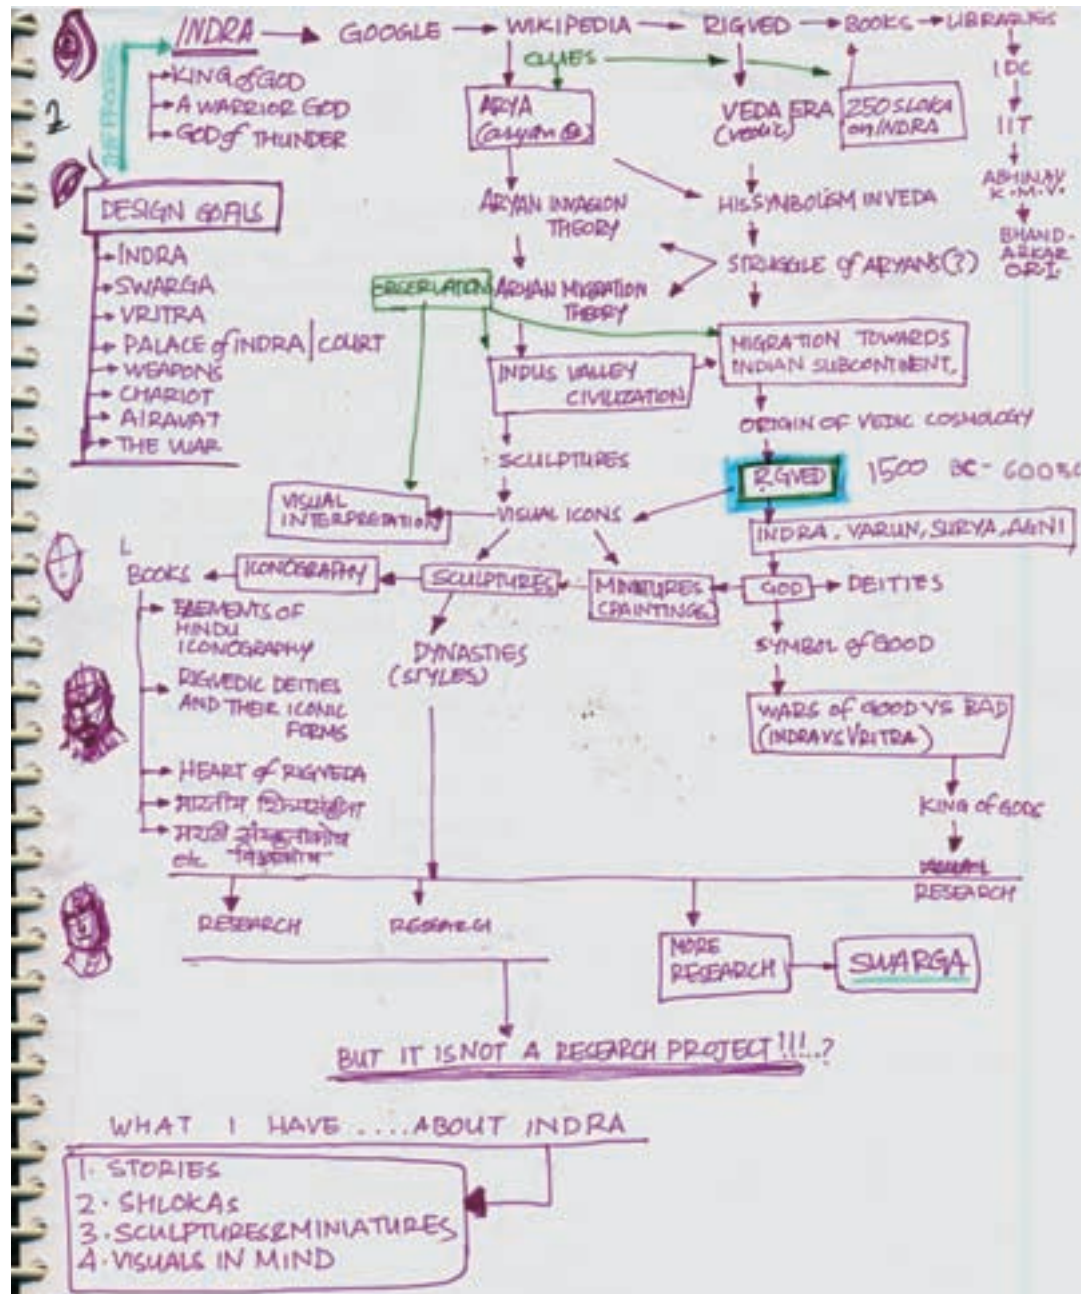 INDRA → GOOGLE → WIKIPEDIA → RIGVED → BOOKS → LIBRARIES
THE PROCESS
KING of GOD
A WARRIOR GOD
GOD of THUNDER
2
CLUES
ARYA
VEDA ERA
(vedic)
250 SLOKA
on INDRA
IDC
IIT
ABHINAV
K.M.V.
BHAND-
ARKAR
O.R.I.
DESIGN GOALS
INDRA
SWARGA
VRITRA
PALACE of INDRA | COURT
WEAPONS
CHARIOT
AIRAVAT
THE WAR
ARYAN INVASION
THEORY
HIS SYMBOLISM IN VEDA
STRUGGLE of ARYANS(?)
OBSERVATION
ARYAN MIGRATION
THEORY
MIGRATION TOWARDS
INDIAN SUBCONTINENT.
INDUS VALLEY
CIVILIZATION
ORIGIN OF VEDIC COSMOLOGY
SCULPTURES
RGVED 1500 BC - 600 BC
VISUAL
INTERPRETATION
VISUAL ICONS
INDRA, VARUN, SURYA, AGNI
BOOKS
ICONOGRAPHY
SCULPTURES
MINIATURES
(PAINTINGS)
GOD
DEITIES
ELEMENTS OF
HINDU
ICONOGRAPHY
RIGVEDIC DEITIES
AND THEIR ICONIC
FORMS
HEART of RIGVEDA
भारतीय
मराठी
etc
DYNASTIES
(STYLES)
SYMBOL of GOOD
WARS of GOOD VS BAD
(INDRA VS VRITRA)
KING of GODS
RESEARCH
RESEARCH
RESEARCH
MORE
RESEARCH
SWARGA
BUT IT IS NOT A RESEARCH PROJECT!!!..?
WHAT I HAVE ....ABOUT INDRA
1. STORIES
2. SHLOKAs
3. SCULPTURES & MINIATURES
4. VISUALS IN MIND